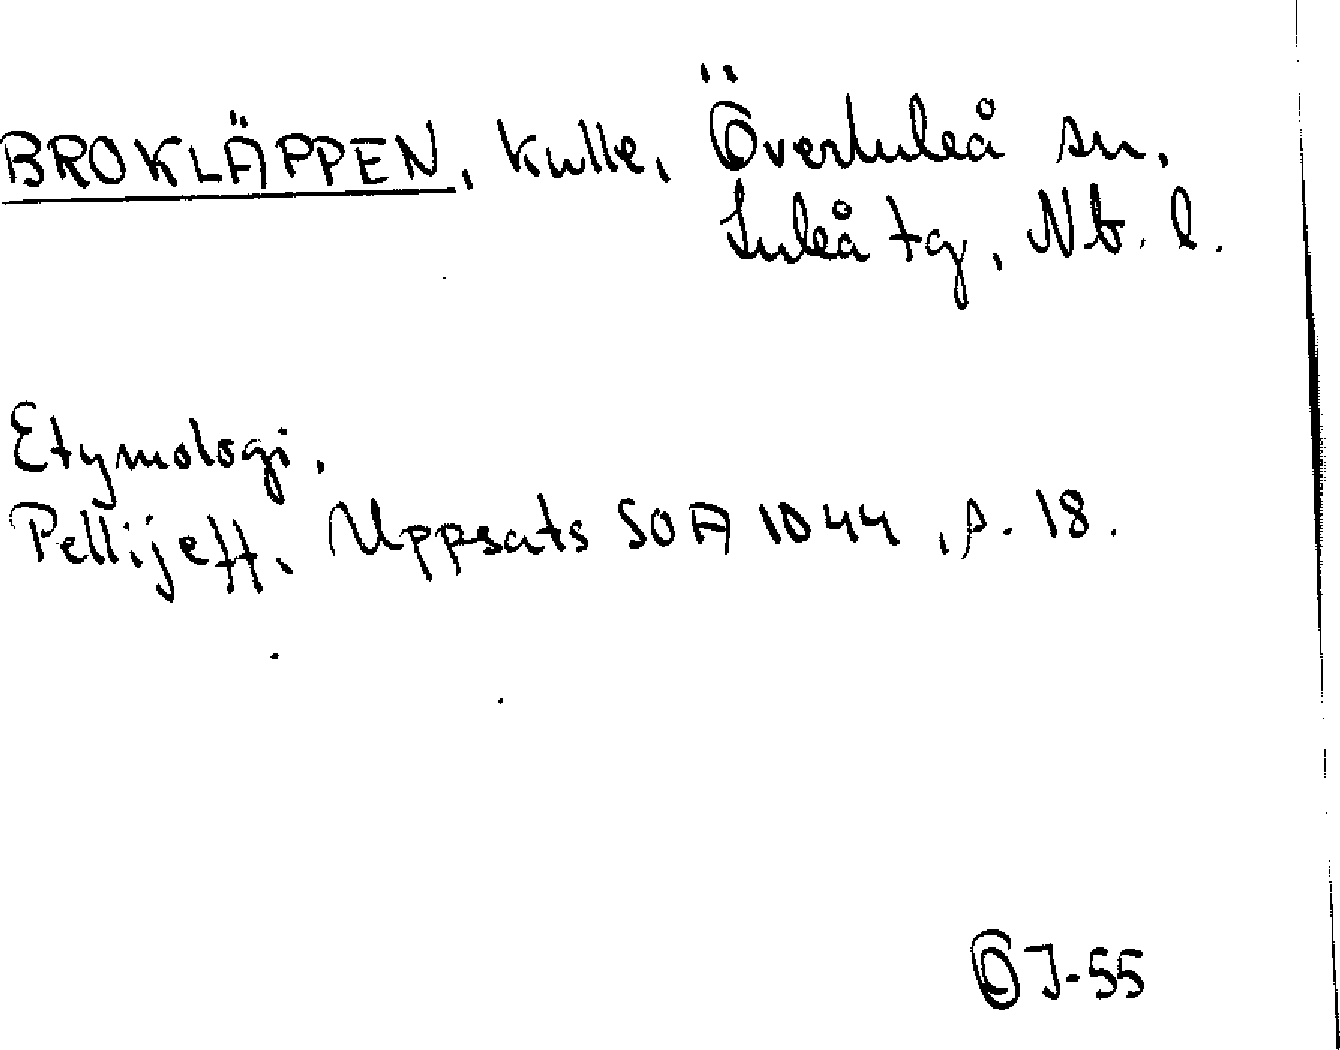 BROKLÄPPEN, kulle, Överluleå sn,
Luleå tg, Nb. l.
Etymologi,
Pellijeff, Uppsats SOFA 1044, s. 18.
OJ-55